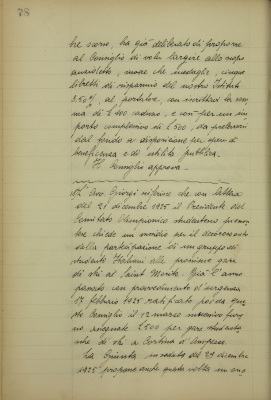 78
bre scorso, ha già deliberato di proporre
al Consiglio di voler largire alla sopra
, oltre che medaglie, cinque
libretti di risparmio del nostro Istituto
3.50% al portatore, con iscrittavi la som
ma di L 100 caduno, e così per un im
porto complessivo di L 500, da prelevarsi
dal fondo a disposizione per opere di
beneficenza e di utilità pubblica.
Il Consiglio approva.
L'Avv. Giorgi riferisce che con lettera
del 21 dicembre 1925 il Presidente del
Comitato Olimpionico studentesco
chiede un per il
della partecipazione di un gruppo di
studenti Italiani alle prossime gare
di ski al Saint Moritz. Già l'anno
passato con provvedimento d'urgenza
17 febbraio 1925 ratificato poi da que
sto Consiglio il 12 marzo
assegnate L 500 per gare
di ski a Cortina d'Ampezzo.
La Giunta in seduta del 29 dicembre
1925 propone anche questa volta un